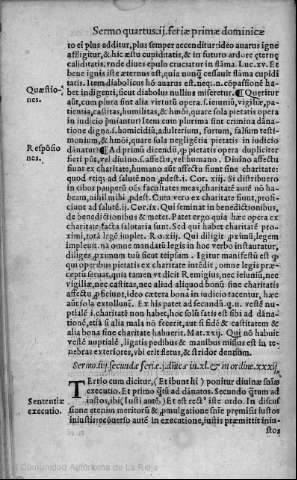 Sermo quartus.ij.feriæ primæ dominicæ
to ei plus additur, plus semper accenditur: ideo auarus igne
affligitur, & hic æstu cupiditatis, & in futuro ardore æternę
caliditatis. unde diues epulo crucior in hac flamma Luc. xv. Et
bene ignis iste æternus est, quia nunq̃ cessauit flamma cupidi
tatis. Item diabolicus: hõ auarus est. neq; .n. cõpassionẽ ha-
Quæstio-
nes.
bet indigenti, sicut diabolus nullius miseretur. ¶ Queritur
aũt, cum plura sint alia virtutũ opera .s. ieiuniũ, vigiliæ, pa-
tientia, castitas, humilitas, & hmõi, quare sola pietatis opera
in iudicio pmiantur? Item cum plurima sint crimina dãna-
tione digna .s. homicidiũ, adulterium, fortum, falsum testi-
monium, & hmõi, quare sola negligẽtia pietatis in iudicio
Respõsio
nes.
dãnatur? ¶ Ad primũ dicendũ, q̃ pietatis opera dupliciter
fieri pñt, vel diuino .s. affectu, vel humano. Diuino affectu
sunt ex charitate, humano aũt affectu sunt sine charitate:
quod etiã ad salutẽ non pdest. i. Cor. xiij. Si distribuero
in cibos pauperũ oẽs facultates meas, charitatẽ autẽ nõ ha-
beam, nihil mihi pdest. Cuncta vero ex charitate sunt, profi-
ciunt ad salutẽ. ij. Cor. ix. Qui seminat in benedictionibus,
de benedictionibus & metet. Patet ergo quia hæc opera ex
charitate facta salutaria sunt. Sed qui habet charitatẽ pro-
ximi, totã legẽ implet. Ro. xiij. Qui diligit primũ, legem
impleuit. nã omne mandatũ legis in hoc verbo instauratur,
diliges proximum tuũ sicut teipsum. Igitur manifestũ est q̃
qui operibus pietatis ex charitate intẽdit, omne legis præ-
ceptũ seruat, quia tamen vt dicit R. emigius, nec ieiuniũ, nec
vigiliæ, nec castitas, nec aliud aliquod bonũ sine charitatis
affectu pficiunt, ideo cetera bona in iudicio tacentur, hæc
aũt sola extollunt. Ex his patet ad secundã q. q. vestẽ nu-
ptialẽ .i. charitatẽ non habet, hoc solũ satis est sibi ad dãna-
tionẽ, etiã si alia mala nõ fecerit, aut si fidẽ & castitatem &
alia bona sine charitate habuerit. Mat. xxij. Qui nõ habuit
vestẽ nuptialẽ, ligatis pedibus & manibus missus est in te-
nebras exteriores, vbi erit fletus, & stridor dentium.
Sermo.iiij.secundæ feriæ .j.dñicæ in .xl. & in ordine.xxxij.
TErtio cum dicitur, (Et ibunt hi) ponitur diuinæ sniæ
executio. Et primo q̃tũ ad dãnatos. Secundo q̃tum ad
Sententiæ
executio.
iustos, ibi (Iusti autẽ) Et est rect⁹ iste ordo. In discus-
sione etenim meritorũ & pmulgatione sniæ pmisit iustos
iniustis: recõuerso autẽ in executione, iustis præmittit iniu-
stos
Comunidad Autónoma de La Rioja